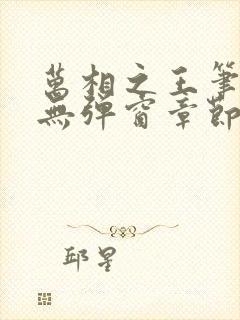 萬相之王筆
無彈窗章節
邱星